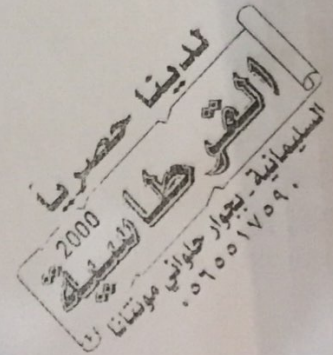 لدينا حصريا
القرطاسية 2000
السليمانية - بجوار حلواني مونتانا
٠٥٦٥٥١٧٥٩٠